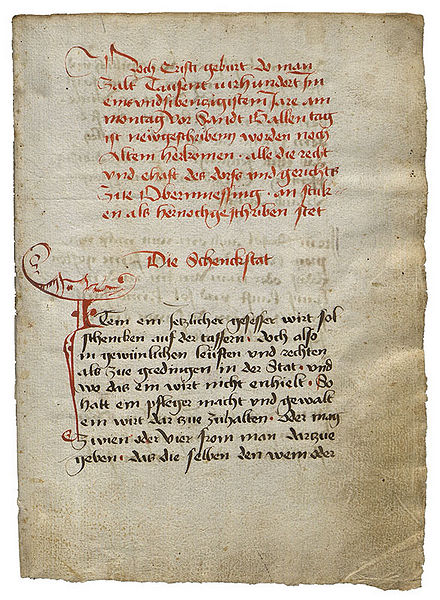 Noch Cristi geburt do man
zalt Tausent vierhundert jm
eins vnd sibenzigistem Jare am
montag vor Sandt Gallen tag
ist newgeschribenn worden noch
Altem herkomen · alle die recht
vnd ehaft des dorfs vnd gerichts
Zue Obermessing · an stuk
en als hernochgeschriben stet
Die Schenckstat
Item ein jetzlicher gesesser wirt sol
schencken auf der taffern · doch also
in gewünlichen leüften vnd rechten
als zue gredingen in der Stat · vnd
wo das ein wirt nicht enhielt · So
hatt ein pfleger macht vnd gewalt
ein wirt dar zue zuhalten · Oder mag
Zwien oder vier from man dar zue
geben · das die selben den wein oder